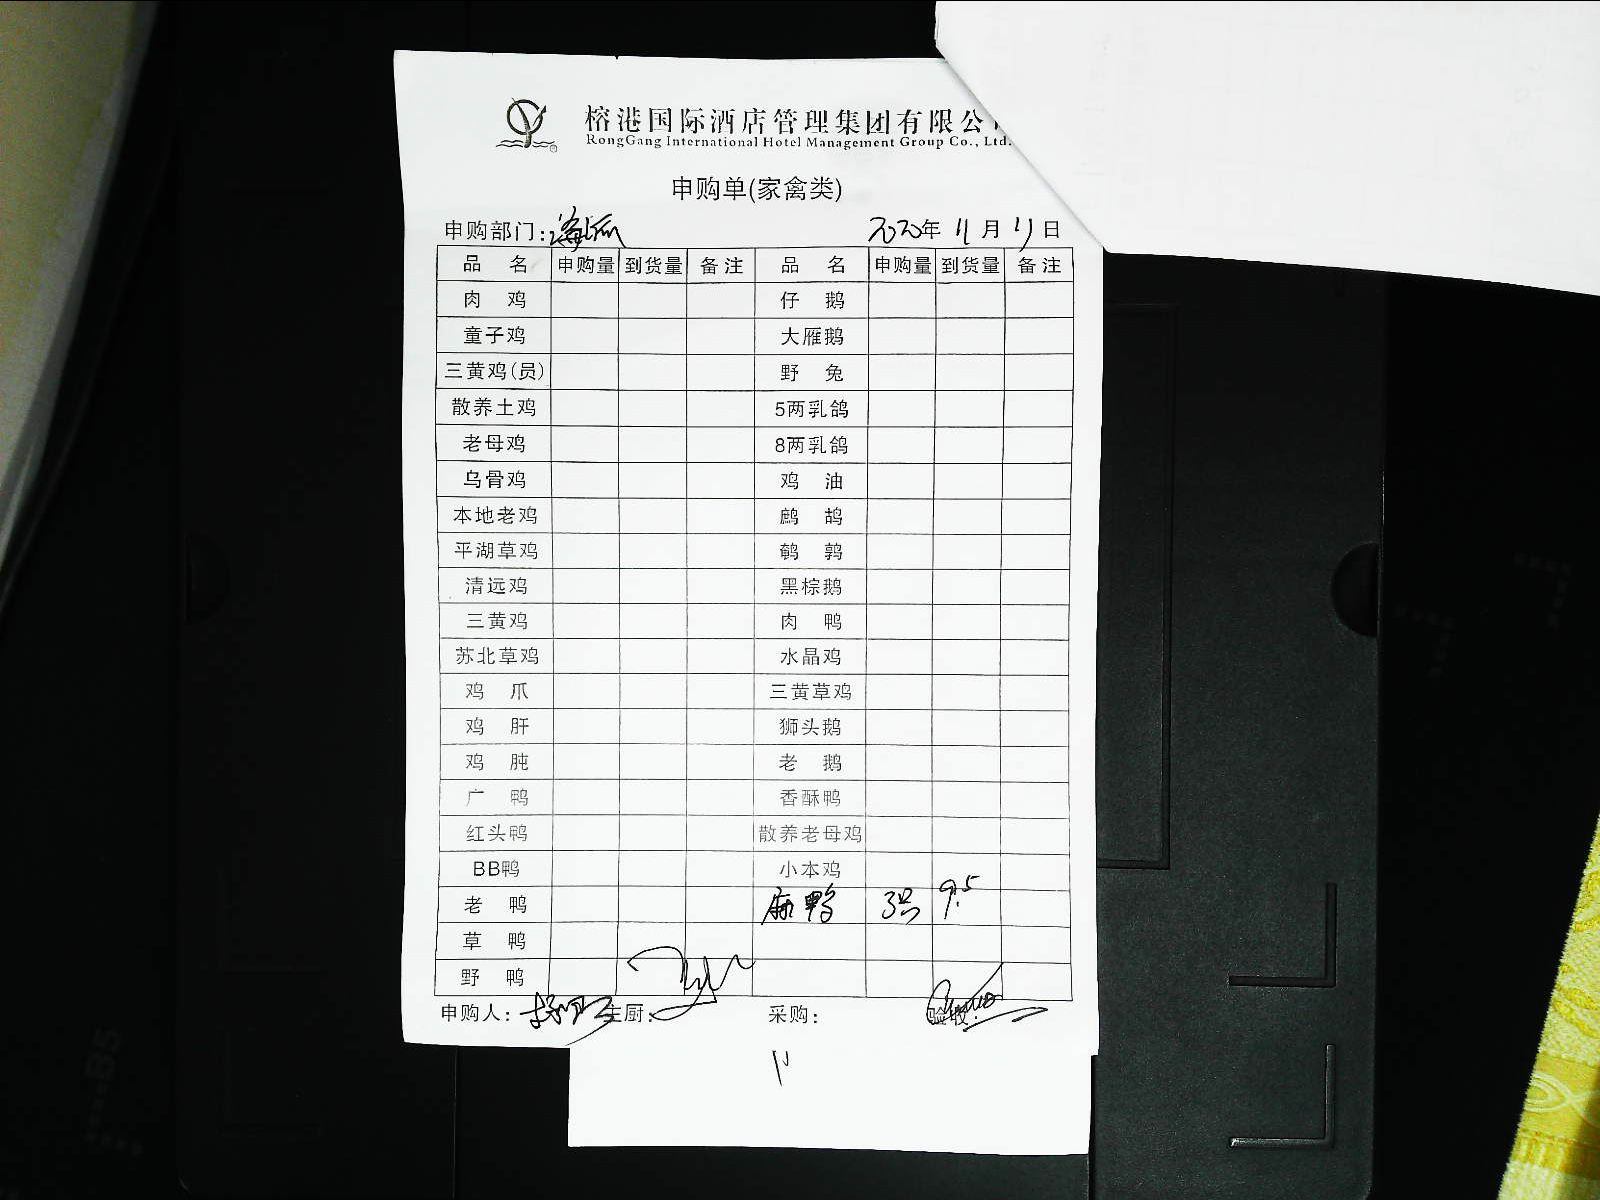 榕港国际酒店管理集团有限公
RongGang International Hotel Management Group Co., Ltd.
申购单(家禽类)
申购部门:海派 2020年 11月 11日
品名 申购量 到货量 备注 品名 申购量 到货量 备注
肉鸡 仔鹅
童子鸡 大雁鹅
三黄鸡(员) 野兔
散养土鸡 5两乳鸽
老母鸡 8两乳鸽
乌骨鸡 鸡油
本地老鸡 鹧鸪
平湖草鸡 鹌鹑
清远鸡 黑棕鹅
三黄鸡 肉鸭
苏北草鸡 水晶鸡
鸡爪 三黄草鸡
鸡肝 狮头鹅
鸡肫 老鹅
广鸭 香酥鸭
红头鸭 散养老母鸡
BB鸭 小本鸡
老鸭 麻鸭 3只 9.5
草鸭
野鸭
申购人: 主厨: 采购: 验收: